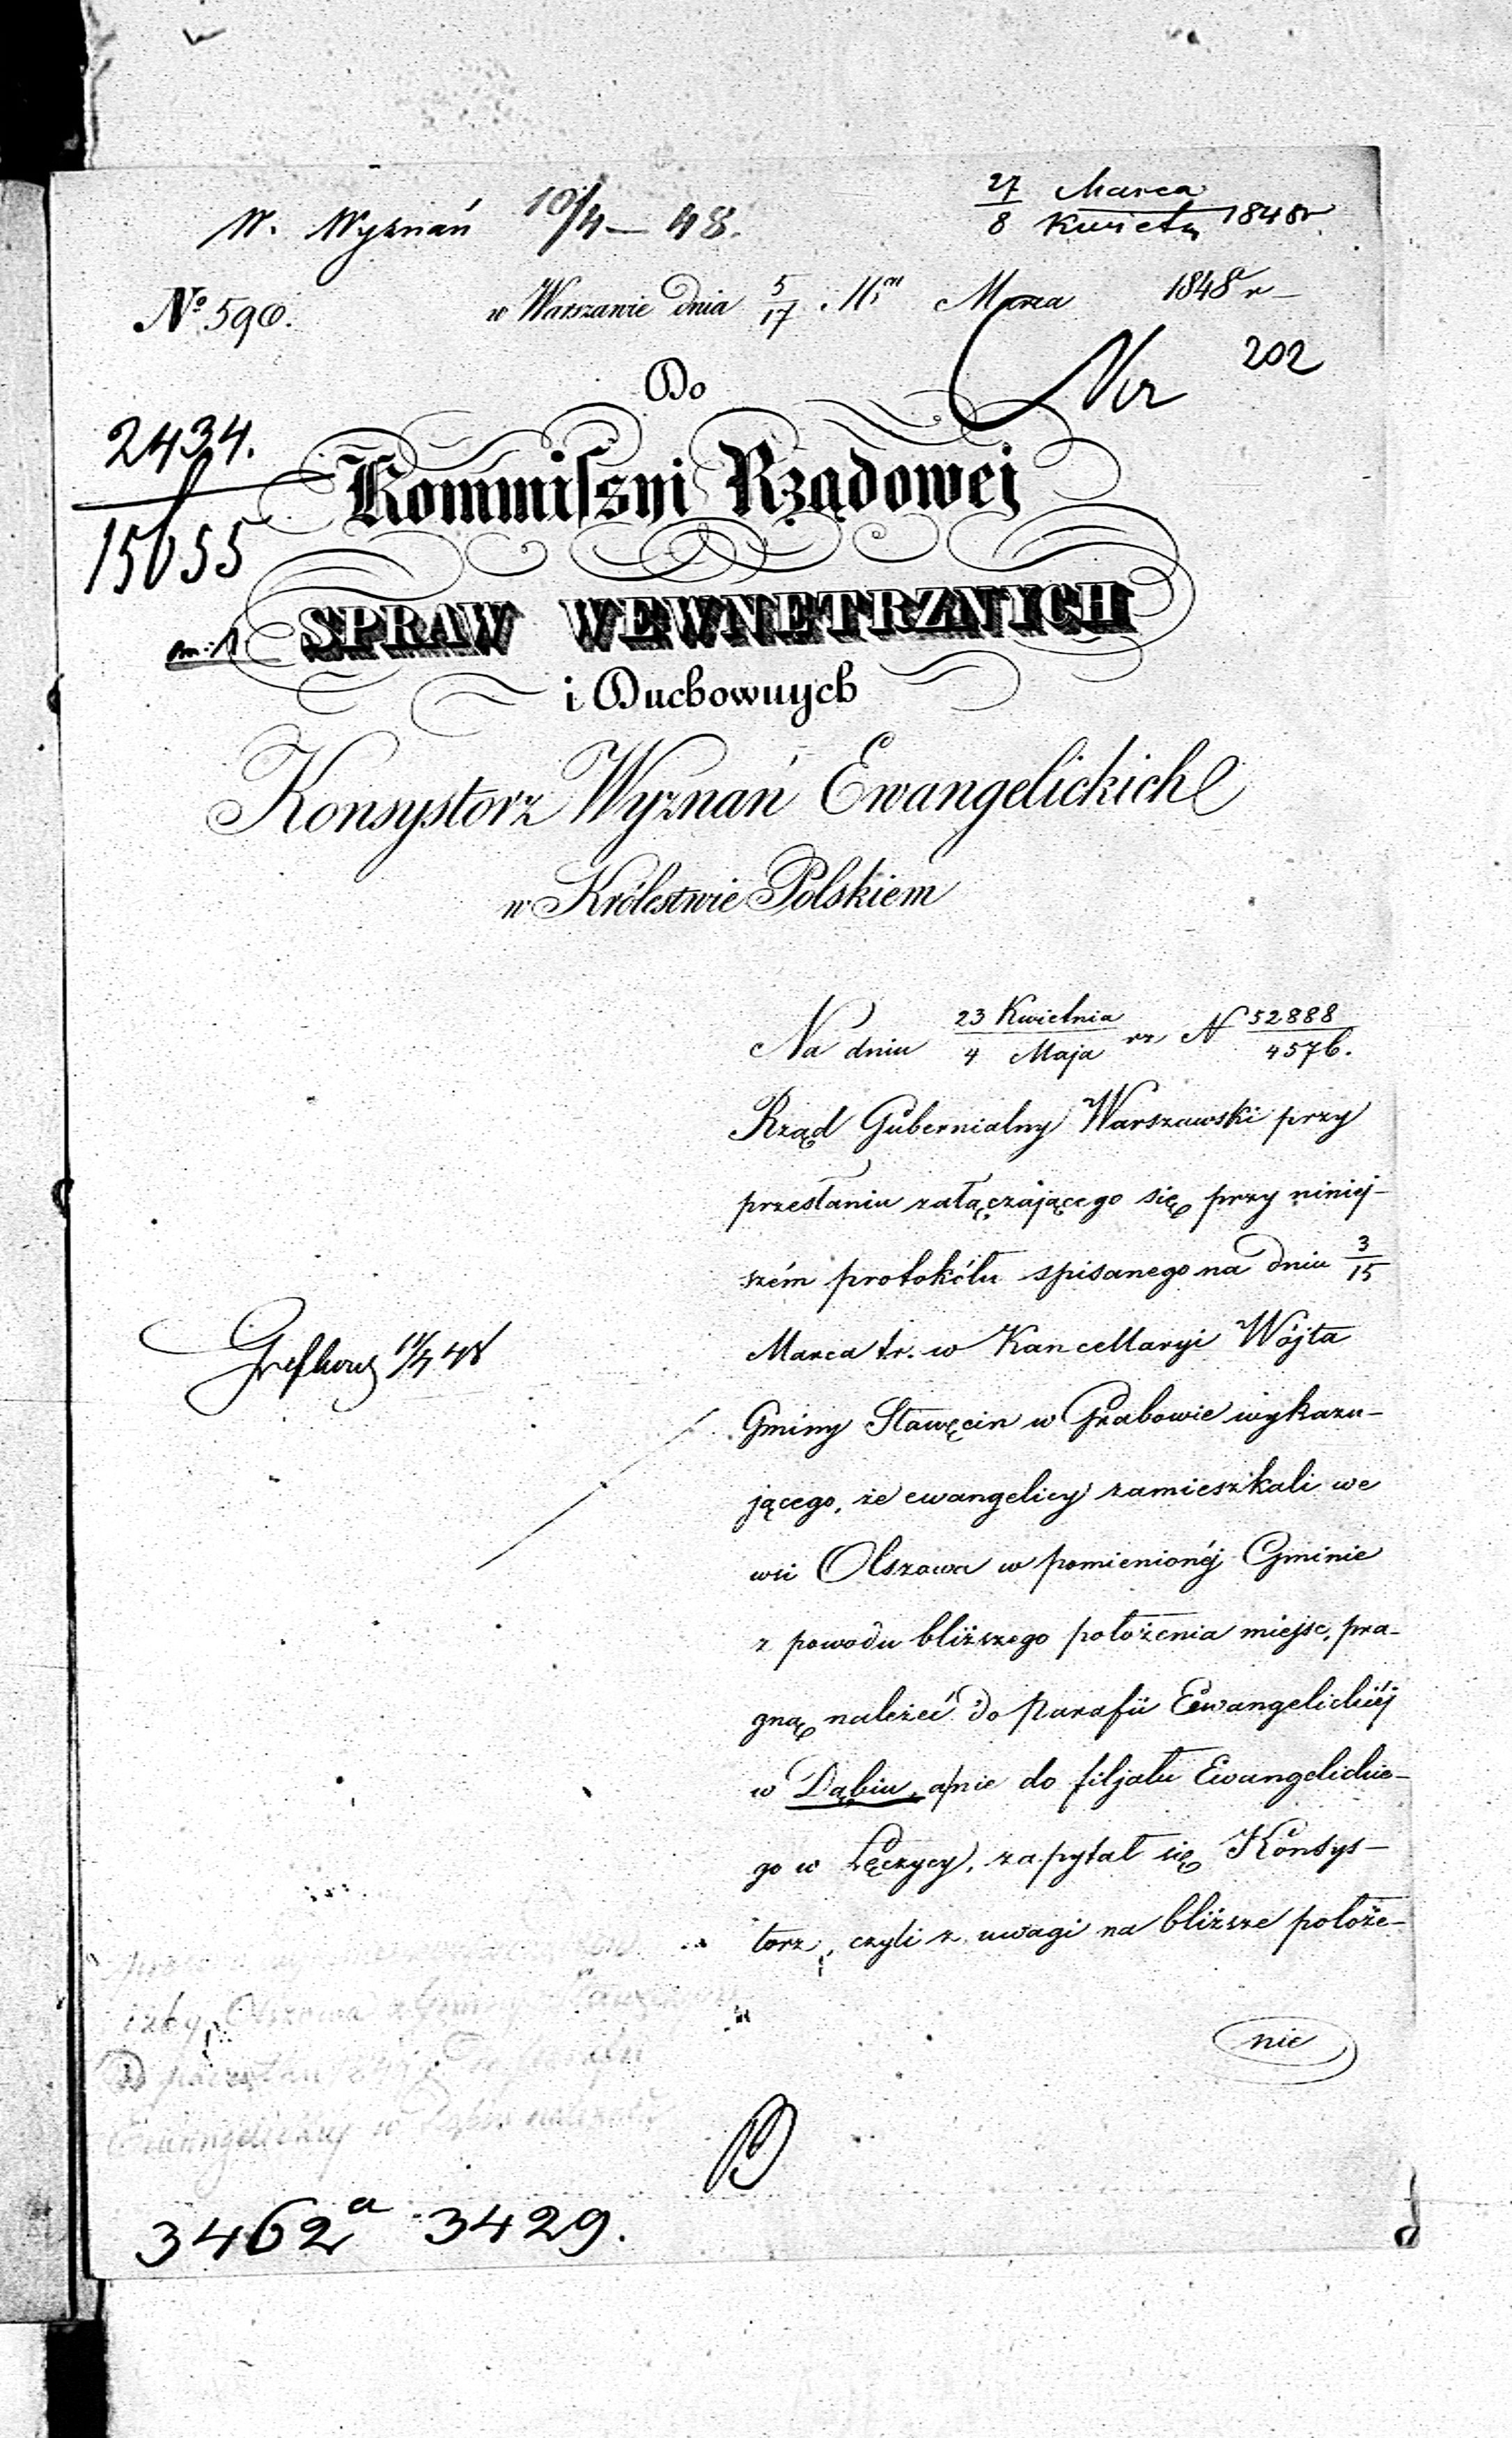 W. Wyznań 10/4 – 48.
27 Marca
8 Kwietn 1848 r.
№ 590.
w Warszawie dnia 5/17 Marca 1848 r
202
2434.
15655
Do
Kommisſzyi Rządowej
SPRAW WEWNĘTRZNYCH
i Duchownych
Konsystorz Wyznań Ewangelickich
w Królestwie Polskiem
Na dniu 23 Kwietnia / 4 Maja N 52888 / 4576.
Rząd Gubernialny Warszawski przy
przesłaniu załączającego się przy niniej-
szém protokółu spisanego na dniu 3/15
Marca t.r. w Kancellaryi Wójta
Gminy Sławęcin w Grabowie wykazu-
jącego, że ewangelicy zamieszkali we
wsi Olszowa w pomienionéj Gminie
z powodu bliższego położenia miejsc, pra-
gną należeć do Parafii Ewangelickiéj
w Dąbiu, a nie do filjału Ewangelickie-
go w Łęczycy, zapytał się Konsys-
torz, czyli z uwagi na bliższe położe-
nie
Olszowa Gminy
Ewangelickiej w Dąbiu
3462a 3429.